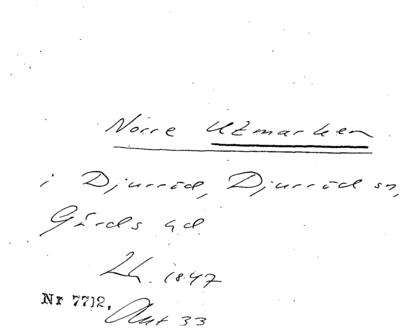 Norre Utmarken
i Djurröd, Djurröd sn,
Gärds hd.
Lh. 1847
Nr 7712. Akt 33